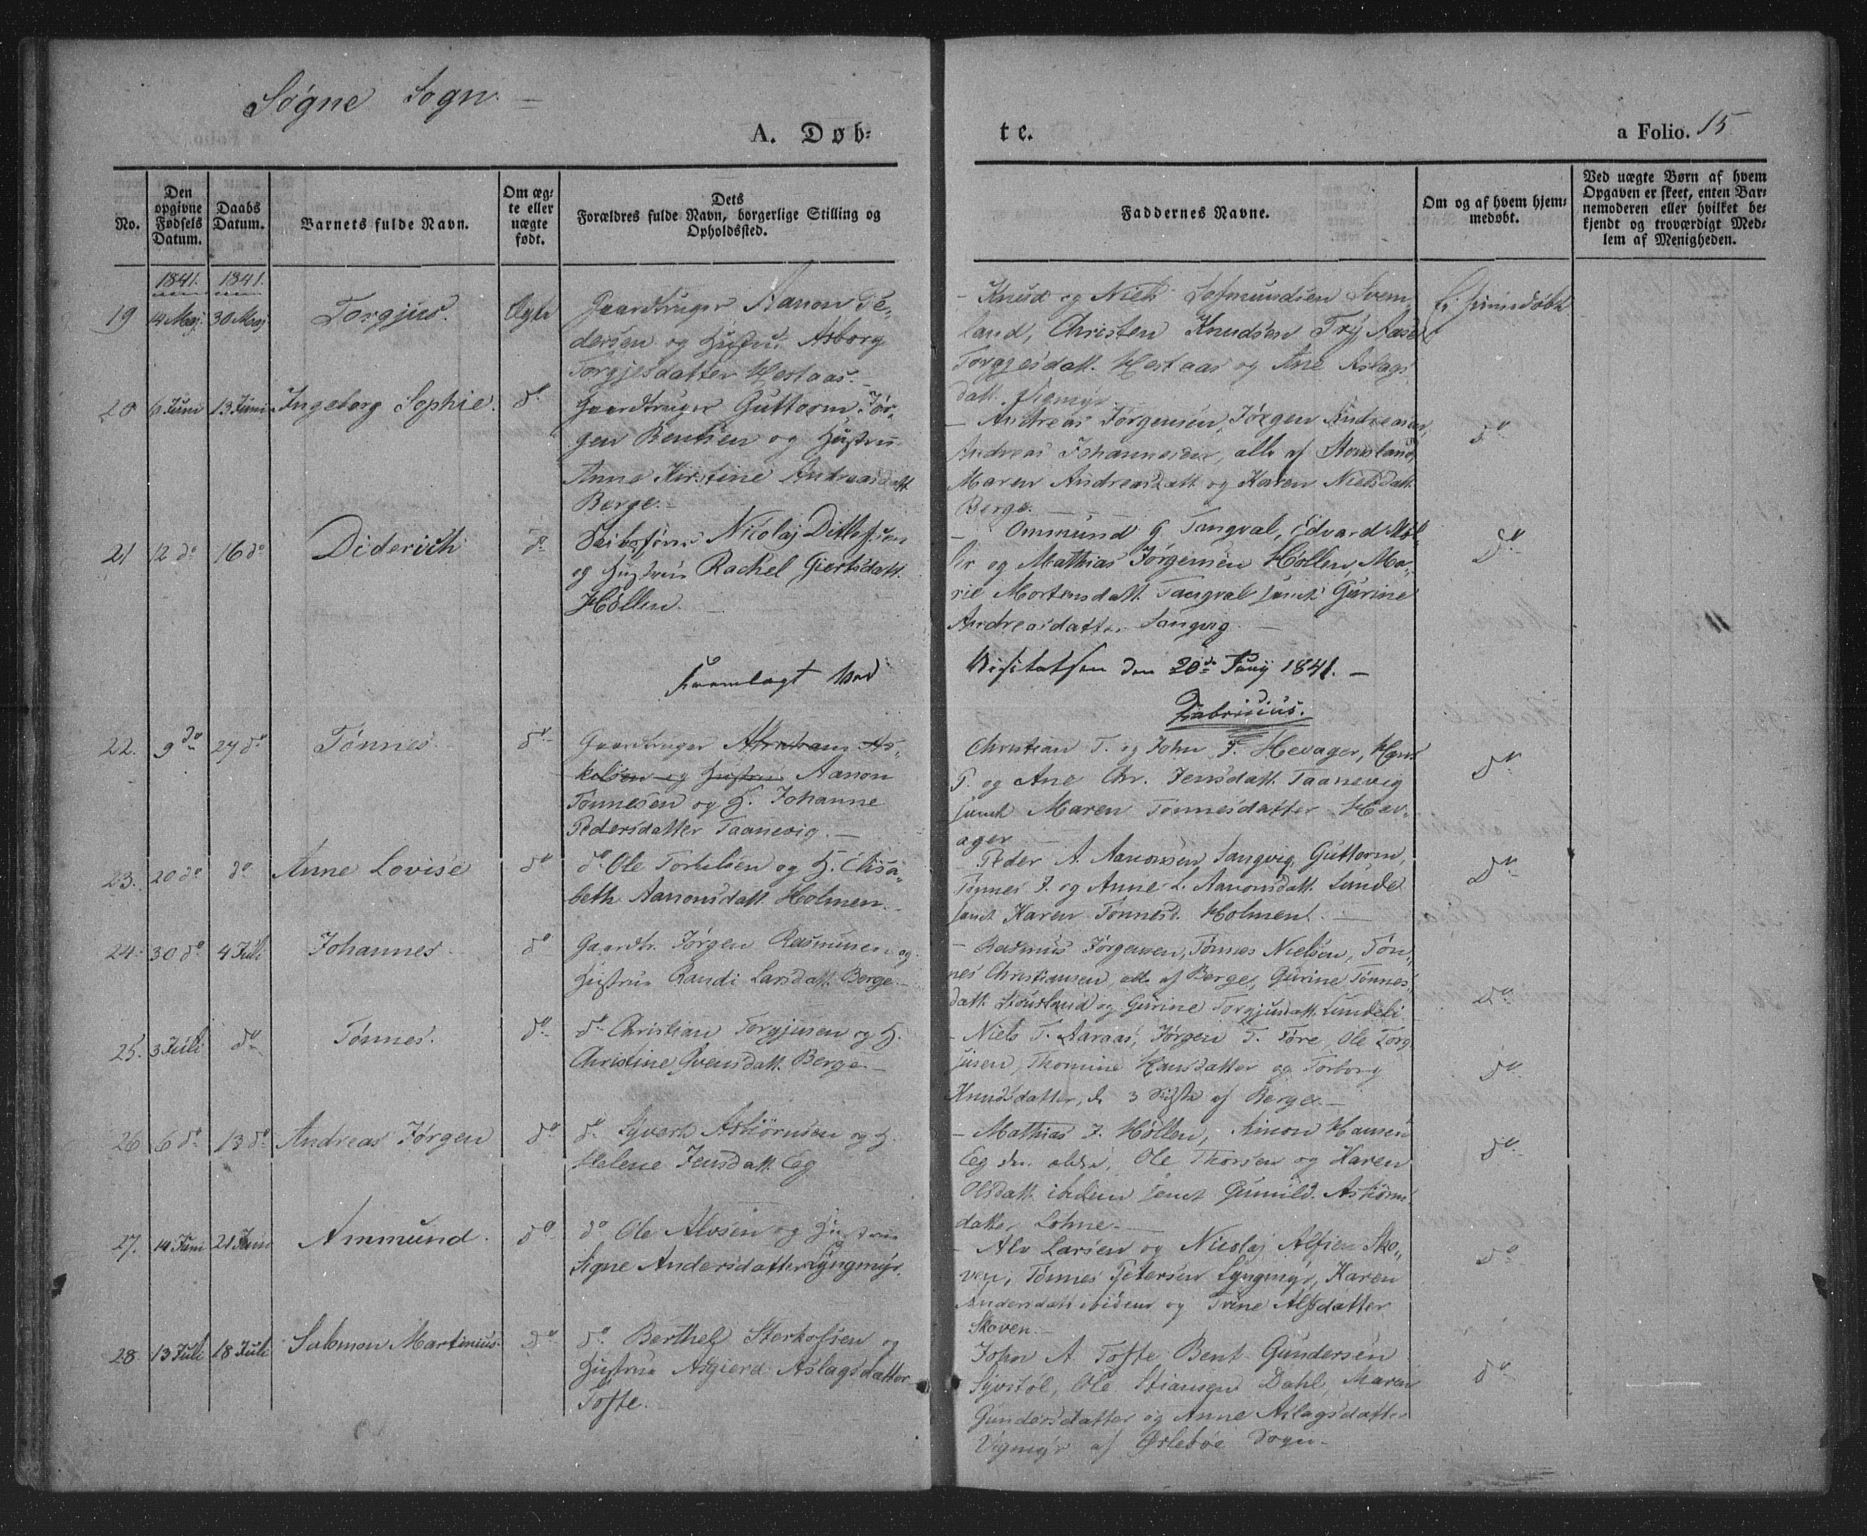 Søgne Sogn.
A. Døb-
te.
a Folio. 15
No.
Den opgivne Fødsels Datum.
Daabs Datum.
Barnets fulde Navn.
Om ægte eller uægte født.
Dets
Forældres fulde Navn, borgerlige Stilling og
Opholdssted.
Faddernes Navne.
Om og af hvem hjem-
medøbt.
Ved uægte Børn af hvem
Opgaven er skeet, enten Bar-
nemoderen eller hvilket be-
kjendt og troværdigt Med-
lem af Menigheden.
1841. 1841.
19 14 Maj 30 Maj Torgjus. Ægte Gaardbruger Aanon Pe-
dersen og Hustru Asborg
Torgjesdatter Hestaas.
Knud og Niels Svem-
land, Christen Knudsen Try, Aase
Torgjesdatt. Hestaas og Ane Aslags-
datt. Vigmyr.
Ei hjemmedøbt
20 6 Juni 13 Juni Ingeborg Sophie. do
Gaardbruger Guttorm Jør-
gen Bentsen og Hustru
Anne Kirstine Andreasdatt.
Berge.
Andreas Jørgensen, Jørgen Andreasen,
Andreas Johannesen, alle af Stousland,
Maren Andreasdatt. og Karen Nielsdatt.
Berge.
do
21 12 do 16 do Diderich do
Nicolaj Ditlefsen
og Hustrue Rachel Giertsdatt.
Høllen.
Ommund G. Tangval, Edvard Møl-
ler og Mathias Jørgensen Høllen, Ma-
rie Mortensdatt. Tangval samt Gurine
Andreasdatter Langvig
do
Fremlagt ved
Visitatsen den 20de Juny 1841.
Fabricius.
22. 9 do 27 do Tønnes do
Gaardbruger Abraham As-
kelsen og Hustru Aanon
Tønnesen og H. Johanne
Pedersdatter Taanevig.
Christian T. og John T. Hevager, Hans
P. og Ane Chr. Jensdatt. Taanevig
samt Maren Tønnesdatter Hev-
ager
do
23. 20 do do Anne Lovise do
do Ole Torkilsen og H. Elisa-
beth Aanonsdatt. Holmen.
Peder A. Aanonsen Langvig, Guttorm,
Tønnes J. og Anne L. Aanonsdatt. Lunde
samt Karen Tønnesd. Holmen.
do
24. 30 do 4 Juli Johannes do
Gaardbr. Jørgen Rasmusen og
Hustrue Randi Larsdatt. Berge.
Rasmus Jørgensen, Tønnes Nielsen, Tøn-
nes Christiansen, alle af Berge, Gurine Tønnes-
datt. Stousland og Gurine Torgjusdatt. Lundeli
do
25. 3 Juli do Tønnes. do
do Christian Torgjusen og H.
Christine Svensdatt. Berge.
Niels T. Aaraas, Jørgen T. Føre, Ole Torg-
jusen, Thomine Hansdatter og Torborg
Knudsdatter, de 3 sidste af Berge.
do
26 6 do 13 do Andreas Jørgen do
do Syvert Asbiørnsen og H.
Helene Jensdatt. Eg
Mathias J. Høllen, Ainon Hansen
Eg den ældre, Ole Thorsen og Karen
Olsdatt. ibidem samt Gunild Asbiørns-
datter Lohne.
do
27. 14 Juni 21 Juni Ammund. do
do Ole Alvsen og Hustrue
Signe Andersdatter Lyngmyr.
Alv Larsen og Nicolaj Alfsen Sko-
ven, Tønnes Petersen Lyngmyr, Karen
Andersdatt. ibidem og Trine Alfsdatter
Skoven.
do
28. 13 Juli 18 Juli Salomon Martinius. do
do Berthel Sterkofsen og
Hustrue Asgierd Aslagsdatter
Tofte.
John A. Tofte, Bent Gundersen
Syvstøl, Ole Stiansen Dahl, Maren
Gundersdatter og Anne Aslagsdatter
Vigmyr af Øslebøe Sogn.
do